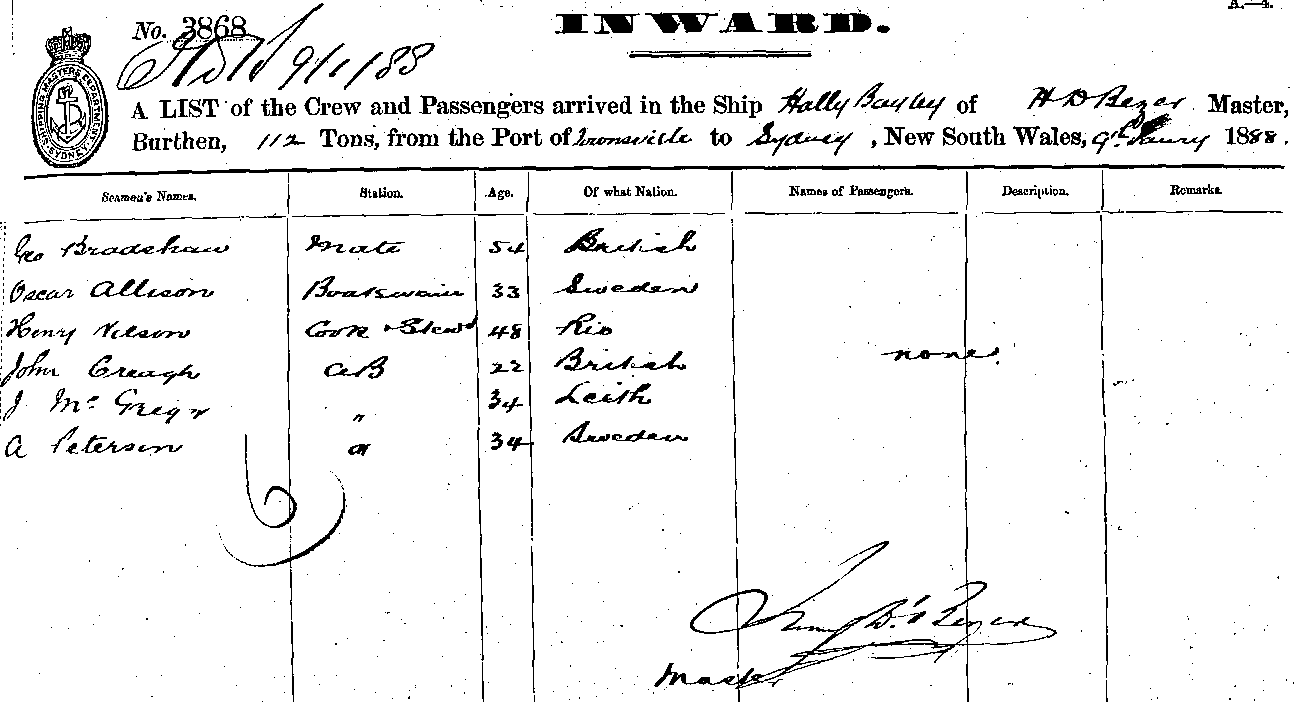 A.—4.
INWARD.
No. 3868
9/1/88
SHIPPING MASTERS DEPARTMENT SYDNEY
A LIST of the Crew and Passengers arrived in the Ship Hally Bayley of H D Bezer Master,
Burthen, 112 Tons, from the Port of Townsville to Sydney, New South Wales, 9th Janry 1888.
Seamen's Names. Station. Age. Of what Nation. Names of Passengers. Description. Remarks.
Geo Bradshaw Mate 54 British
Oscar Allison Boatswain 33 Sweden
Henry Nelson Cook & Stewd 48 Rio
John Creagh AB 22 British none.
J McGregor " 34 Leith
A Peterson " 34 Sweden
6
Master